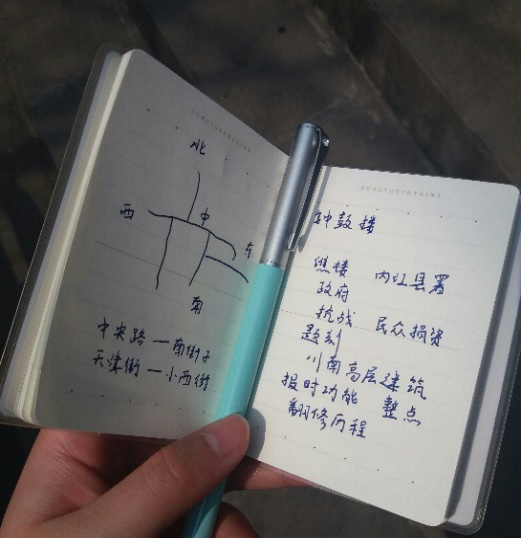 北
西
中
东
南
中央路 — 南街子
天津街 — 小西街
钟鼓楼
谯楼 内江县署
政府
抗战 民众捐资
题刻
川南高层建筑
报时功能 整点
翻修历程